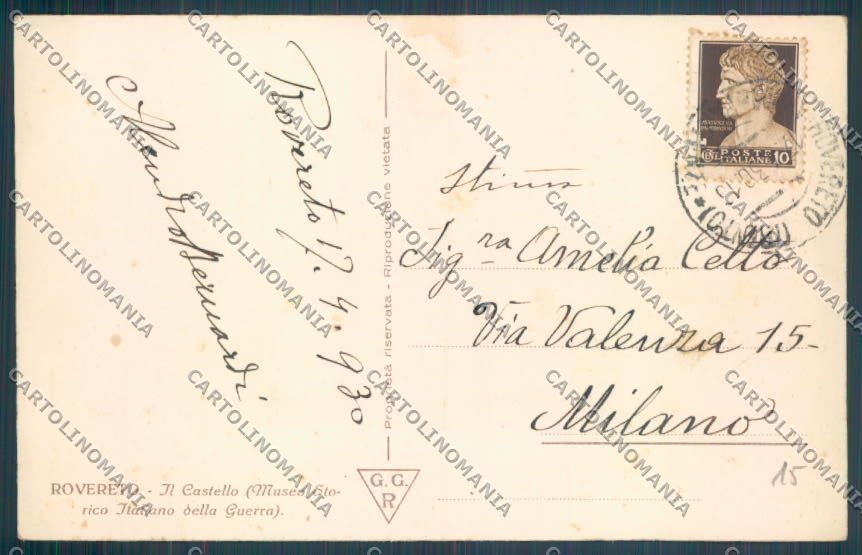 Rovereto 17.4.930
Alessandro Bernardi
Proprietà riservata - Riproduzione vietata
ROVERETO - Il Castello (Museo Sto-
rico Italiano della Guerra).
G. G.
R
POSTE
ITALIANE
CENT. 10
ROVERETO
(TRENTO)
Sig.ra Amelia Cetto
Via Valenza 15-
Milano
15
CARTOLINOMANIA